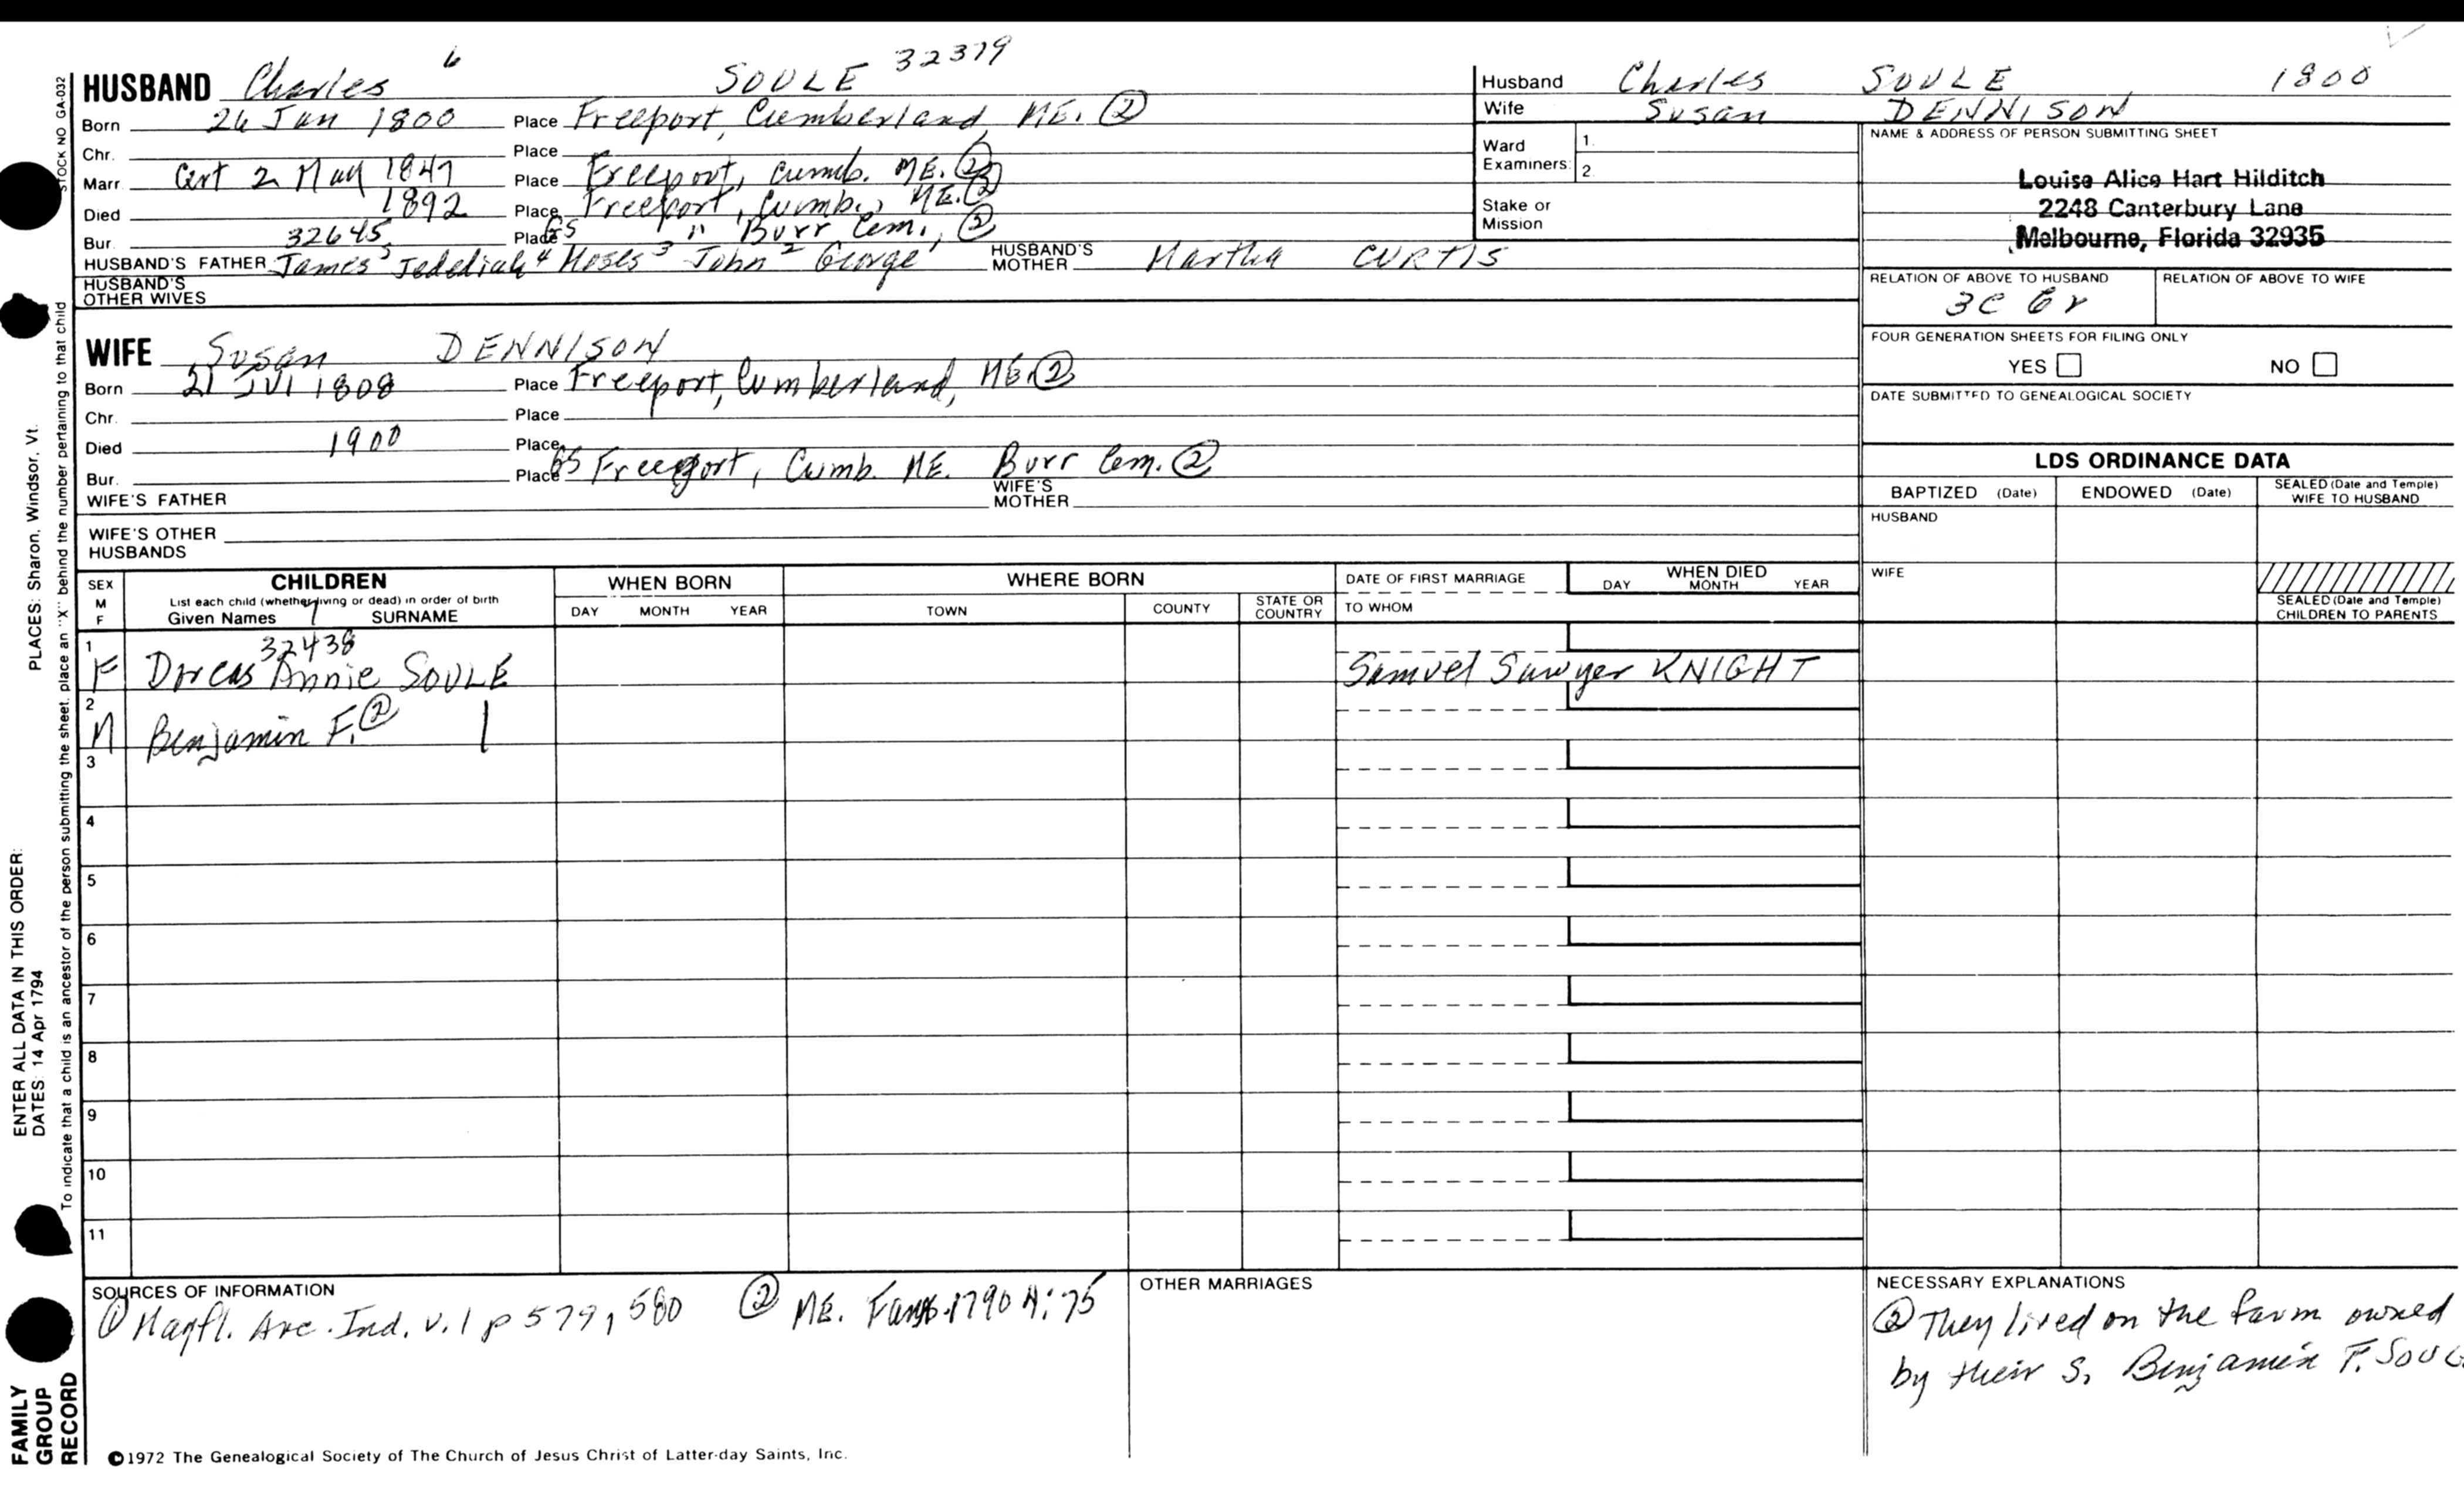 HUSBAND Charles 6 SOULE 32379
Born 26 Jan 1800 Place Freeport, Cumberland, ME. ②
Chr. Place
Marr. Cert 2 May 1847 Place Freeport, Cumb. ME. ②
Died 1892 Place Freeport, Cumb., ME. ②
Bur. 32645 Place GS " Burr Cem., ②
HUSBAND'S FATHER James 5 Jedediah 4 Moses 3 John 2 George 1 HUSBAND'S MOTHER Martha CURTIS
HUSBAND'S OTHER WIVES
WIFE Susan DENNISON
Born 21 Jul 1808 Place Freeport, Cumberland, ME. ②
Chr. Place
Died 1900 Place
Bur. Place GS Freeport, Cumb. ME. Burr Cem. ②
WIFE'S FATHER WIFE'S MOTHER
WIFE'S OTHER HUSBANDS
Husband Charles SOULE 1800
Wife Susan DENNISON
Ward Examiners: 1. 2
Stake or Mission
NAME & ADDRESS OF PERSON SUBMITTING SHEET
Louise Alice Hart Hilditch
2248 Canterbury Lane
Melbourne, Florida 32935
RELATION OF ABOVE TO HUSBAND RELATION OF ABOVE TO WIFE
3C 6r
FOUR GENERATION SHEETS FOR FILING ONLY
YES NO
DATE SUBMITTED TO GENEALOGICAL SOCIETY
LDS ORDINANCE DATA
BAPTIZED (Date) ENDOWED (Date) SEALED (Date and Temple) WIFE TO HUSBAND
HUSBAND
WIFE
SEALED (Date and Temple) CHILDREN TO PARENTS
SEX M F
CHILDREN
List each child (whether living or dead) in order of birth
Given Names SURNAME
WHEN BORN
DAY MONTH YEAR
WHERE BORN
TOWN COUNTY STATE OR COUNTRY
DATE OF FIRST MARRIAGE
TO WHOM
WHEN DIED
DAY MONTH YEAR
1 32438
F Dorcas Annie SOULE Samuel Sawyer KNIGHT
2
M Benjamin F. ②
3
4
5
6
7
8
9
10
11
SOURCES OF INFORMATION
① Mayfl. Anc. Ind. v. 1 p 579, 580 ② ME. Fams. 1790 4:75
OTHER MARRIAGES
NECESSARY EXPLANATIONS
② They lived on the farm owned
by their s. Benjamin F.
©1972 The Genealogical Society of The Church of Jesus Christ of Latter-day Saints, Inc.
STOCK NO GA-032
To indicate that a child is an ancestor of the person submitting the sheet, place an "X" behind the number pertaining to that child
PLACES: Sharon, Windsor, Vt.
ENTER ALL DATA IN THIS ORDER:
DATES: 14 Apr 1794
FAMILY
GROUP
RECORD